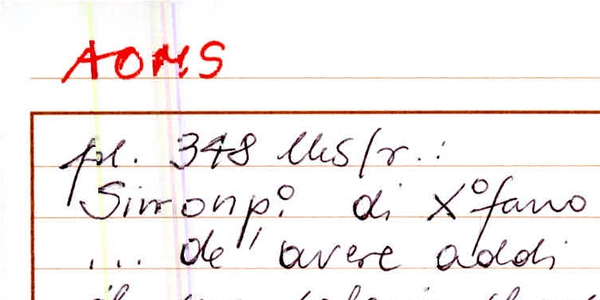 AOMS
pl. 348 llis/r.:
Simonp.º di Xºfano
... de' avere addi